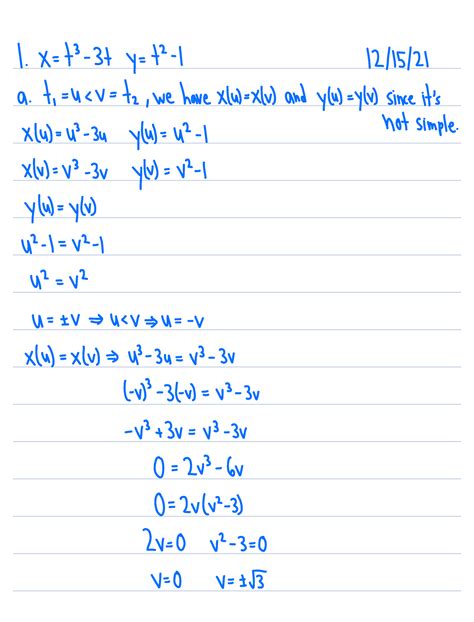 1. x=t³-3t y=t²-1 12/15/21
a. t₁=u<v=t₂, we have x(u)=x(v) and y(u)=y(v) since it's
not simple.
x(u)=u³-3u y(u)=u²-1
x(v)=v³-3v y(v)=v²-1
y(u)=y(v)
u²-1=v²-1
u²=v²
u=±v ⇒ u<v ⇒ u=-v
x(u)=x(v) ⇒ u³-3u=v³-3v
(-v)³-3(-v)=v³-3v
-v³+3v=v³-3v
0=2v³-6v
0=2v(v²-3)
2v=0 v²-3=0
v=0 v=±√3